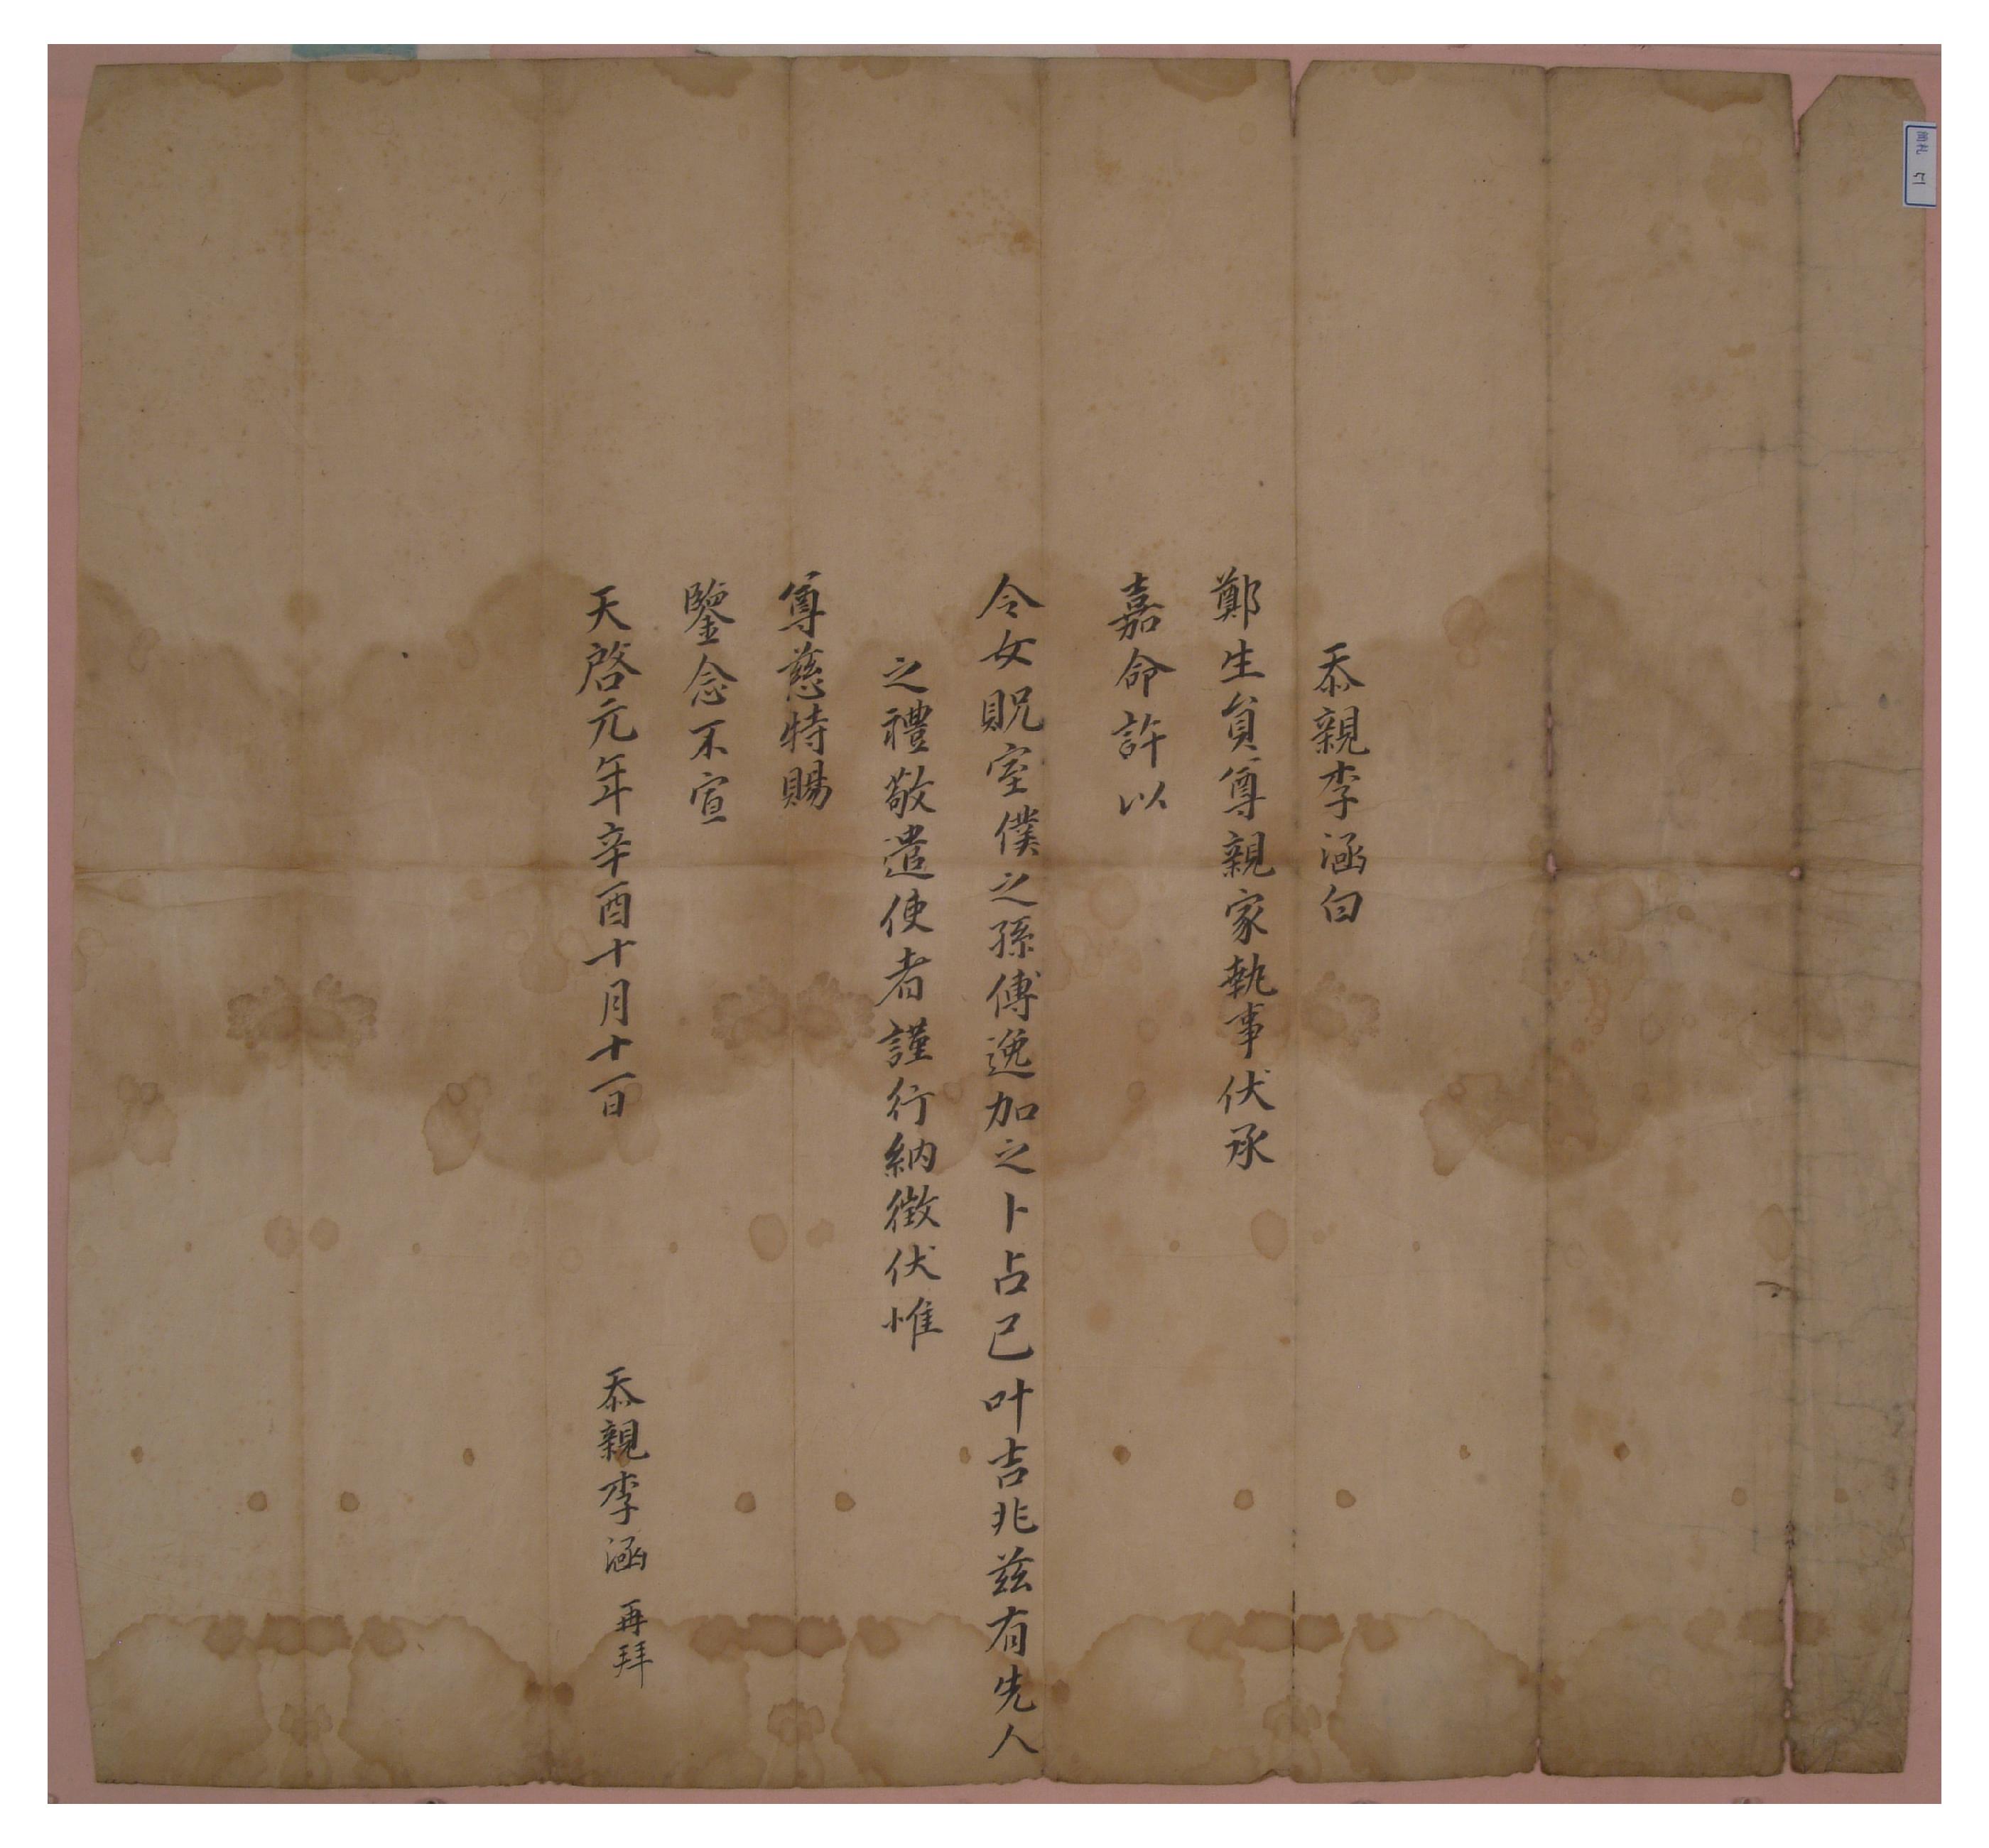 忝親李涵白
鄭生員尊親家執事伏承
嘉命許以
令女貺室僕之孫傅逸加之卜占已叶吉兆玆有先人
之禮敬遣使者謹行納徵伏惟
尊慈特賜
鑒念不宣
天啓元年辛酉十月十一日
忝親李涵 再拜